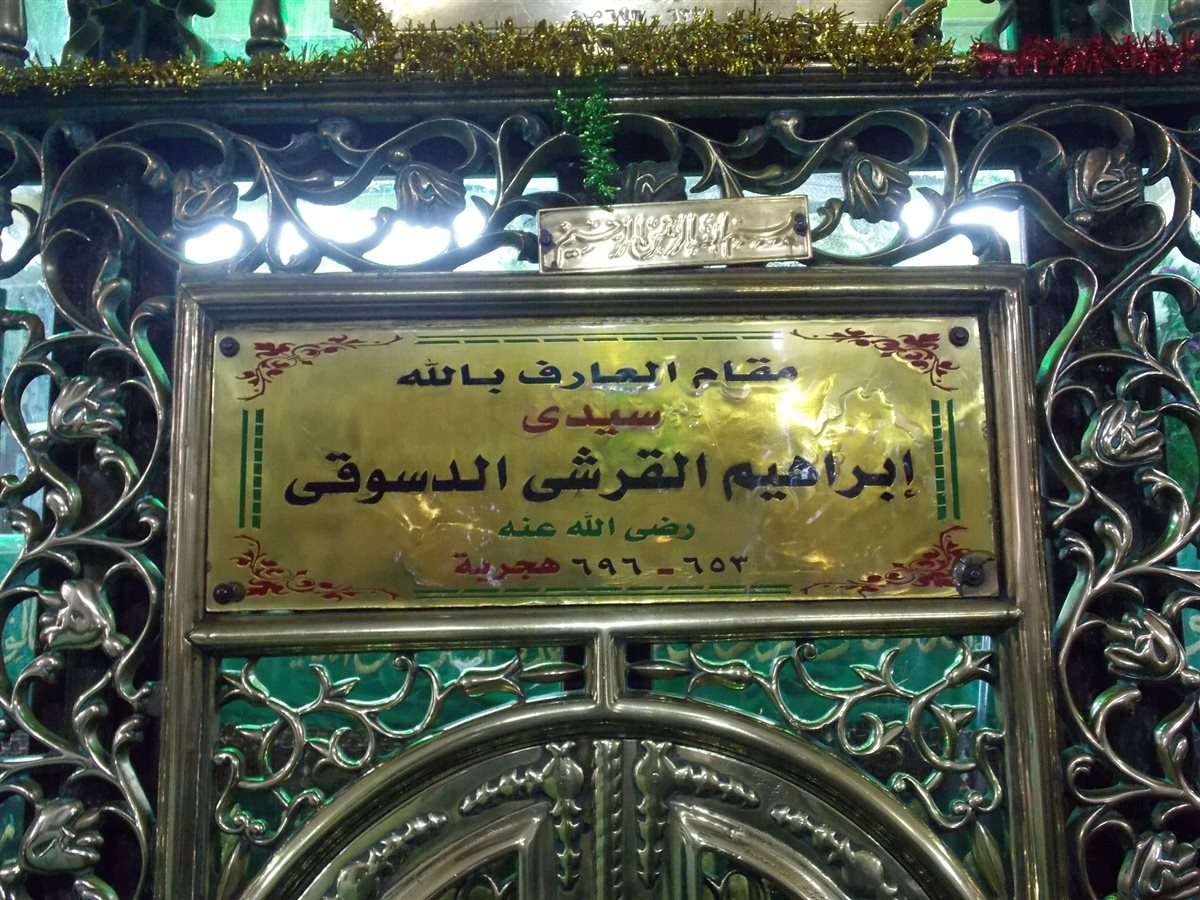 ٦٥٣ - ٦٩٦
بسم الله الرحمن الرحيم
مقام العارف بالله
سيدى
إبراهيم القرشى الدسوقى
رضى الله عنه
٦٥٣ - ٦٩٦ هجرية